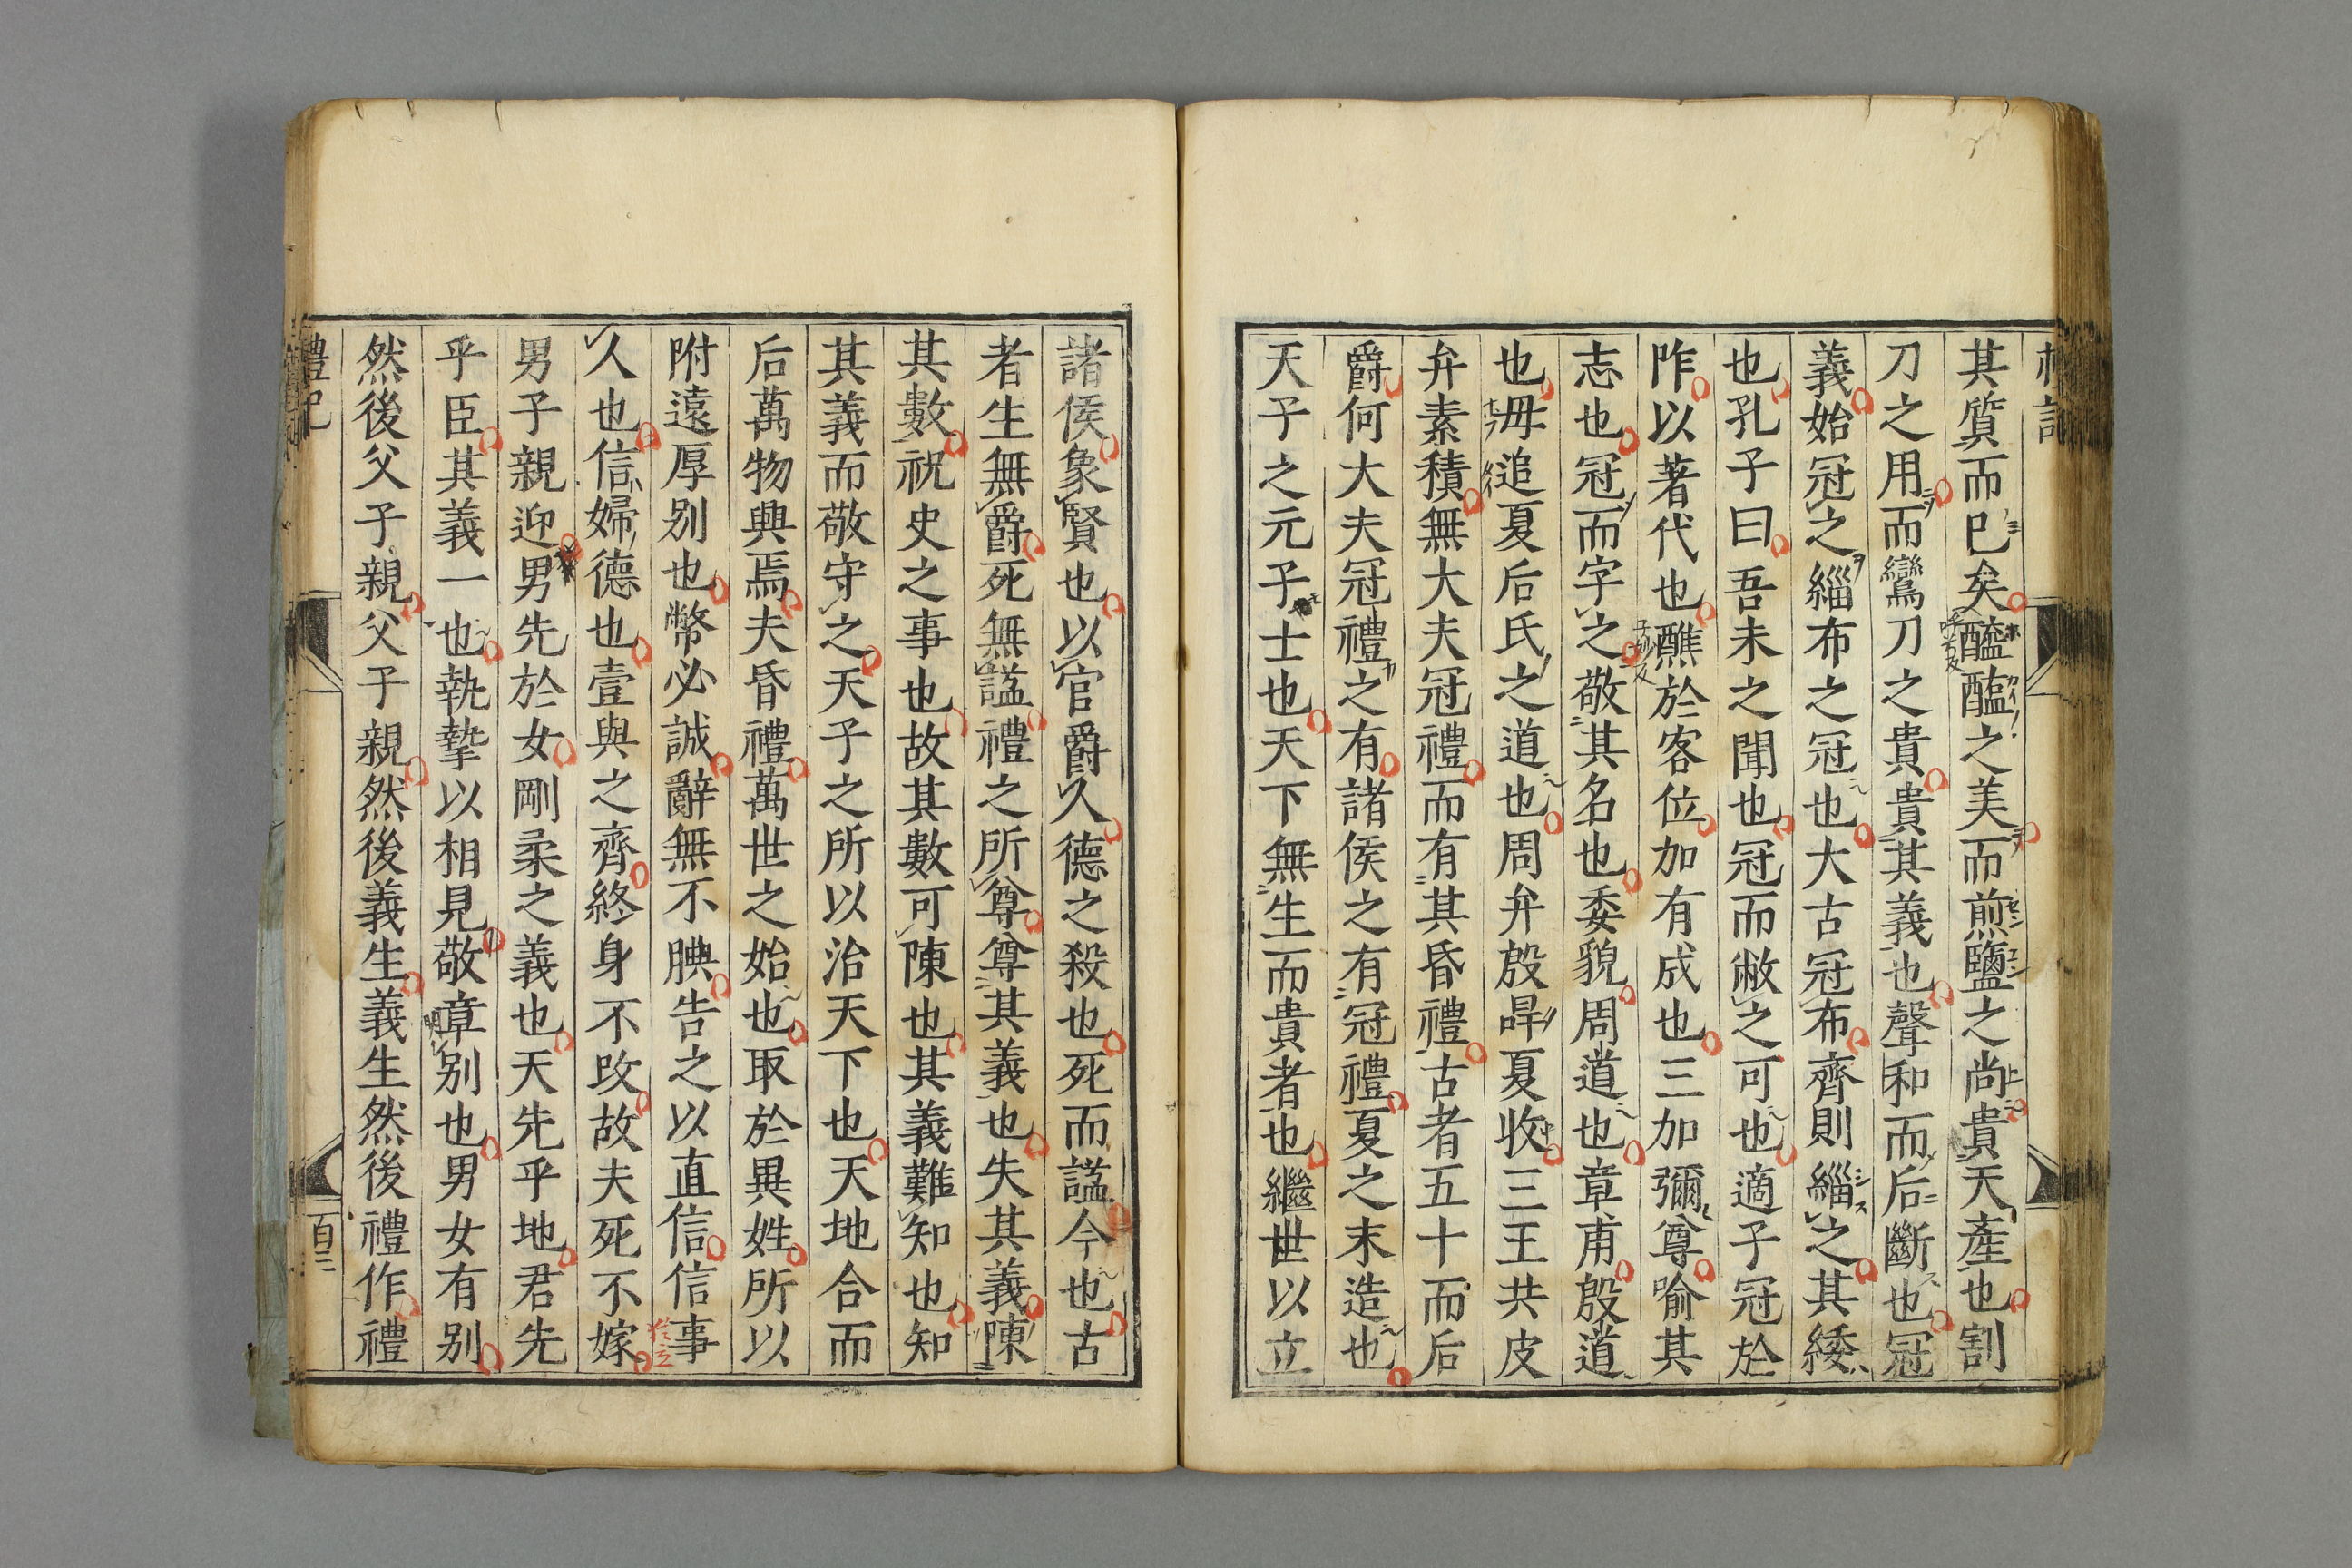 其質而已矣醯醢之美而煎鹽之尚貴天產也割
刀之用而鸞刀之貴貴其義也聲和而后斷也冠
義始冠之緇布之冠也大古冠布齊則緇之其緌
也孔子曰吾未之聞也冠而敝之可也適子冠於
阼以著代也醮於客位加有成也三加彌尊喻其
志也冠而字之敬其名也委貌周道也章甫殷道
也毋追夏后氏之道也周弁殷冔夏收三王共皮
弁素積無大夫冠禮而有其昏禮古者五十而后
爵何大夫冠禮之有諸侯之有冠禮夏之末造也
天子之元子士也天下無生而貴者也繼世以立
諸侯象賢也以官爵人德之殺也死而諡今也古
者生無爵死無諡禮之所尊尊其義也失其義陳
其數祝史之事也故其數可陳也其義難知也知
其義而敬守之天子之所以治天下也天地合而
后萬物興焉夫昏禮萬世之始也取於異姓所以
附遠厚別也幣必誠辭無不腆告之以直信信事
人也信婦德也壹與之齊終身不改故夫死不嫁
男子親迎男先於女剛柔之義也天先乎地君先
乎臣其義一也執摯以相見敬章別也男女有別
然後父子親父子親然後義生義生然後禮作禮
禮記
百二